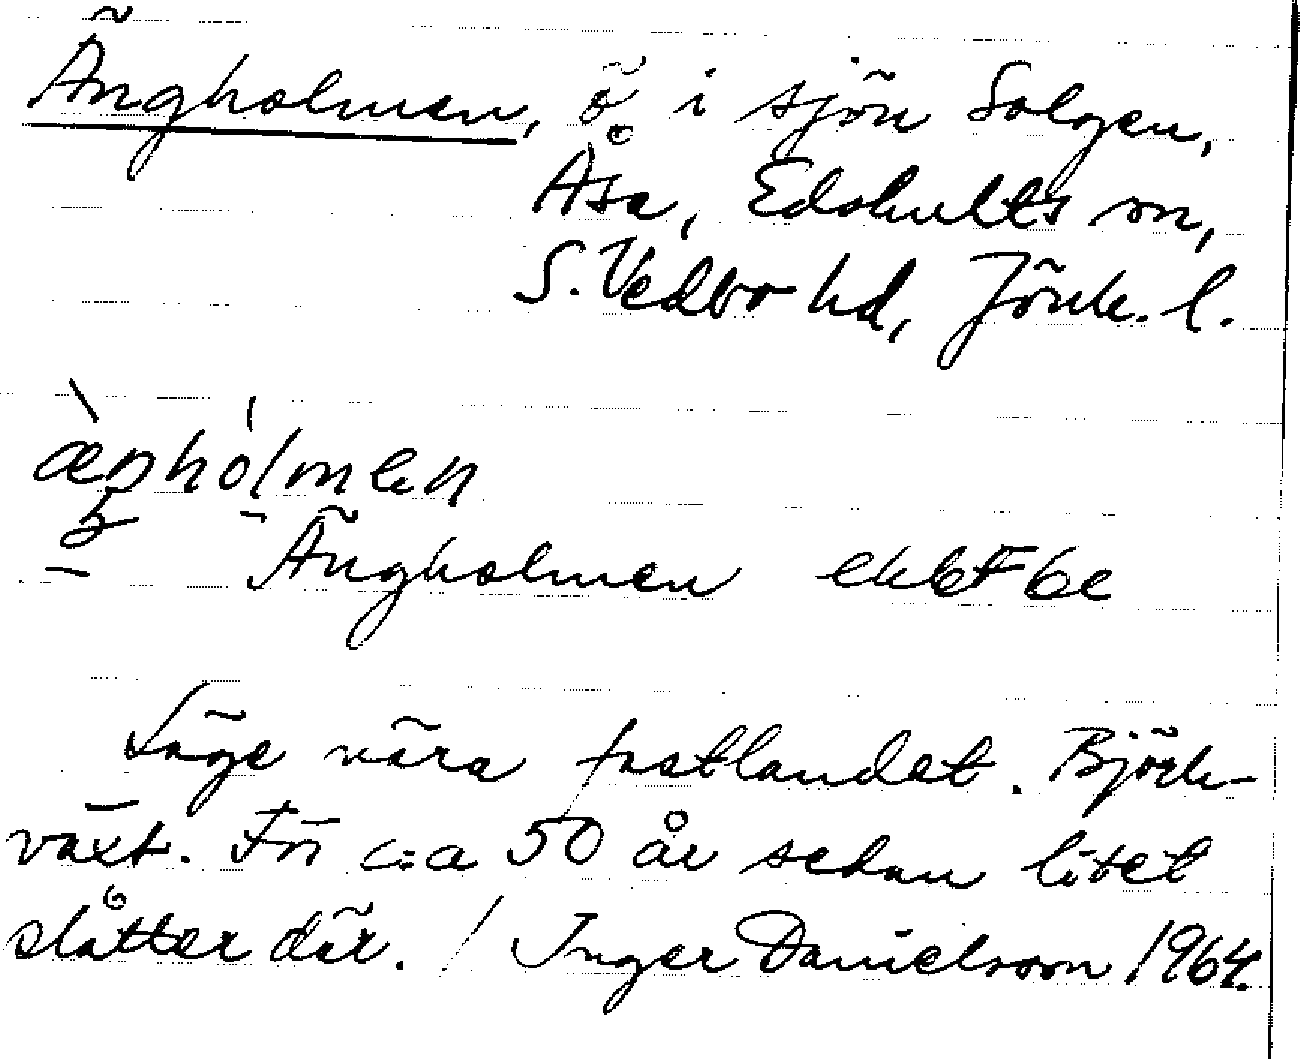 Ängholmen, ö i sjön Solgen,
Åsa, Edshults sn,
S. Vedbo hd, Jönk. l.
Ängholmen ekbl 6e
Läge nära fastlandet. Björk-
växt. För c:a 50 år sedan litet
slåtter där. / Inger Danielsson 1964.